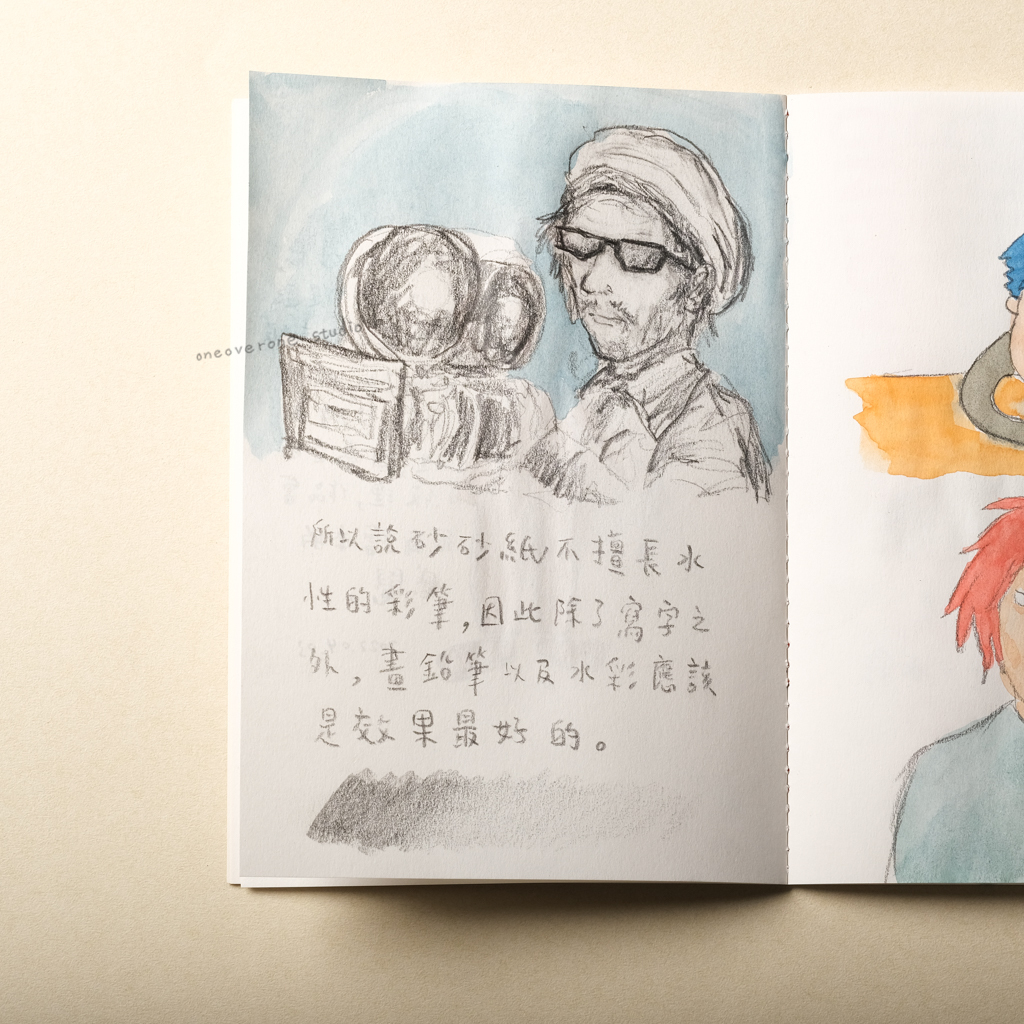 oneoverone studio
所以說砂砂紙不擅長水
性的彩筆,因此除了寫字之
外,畫鉛筆以及水彩應該
是效果最好的。